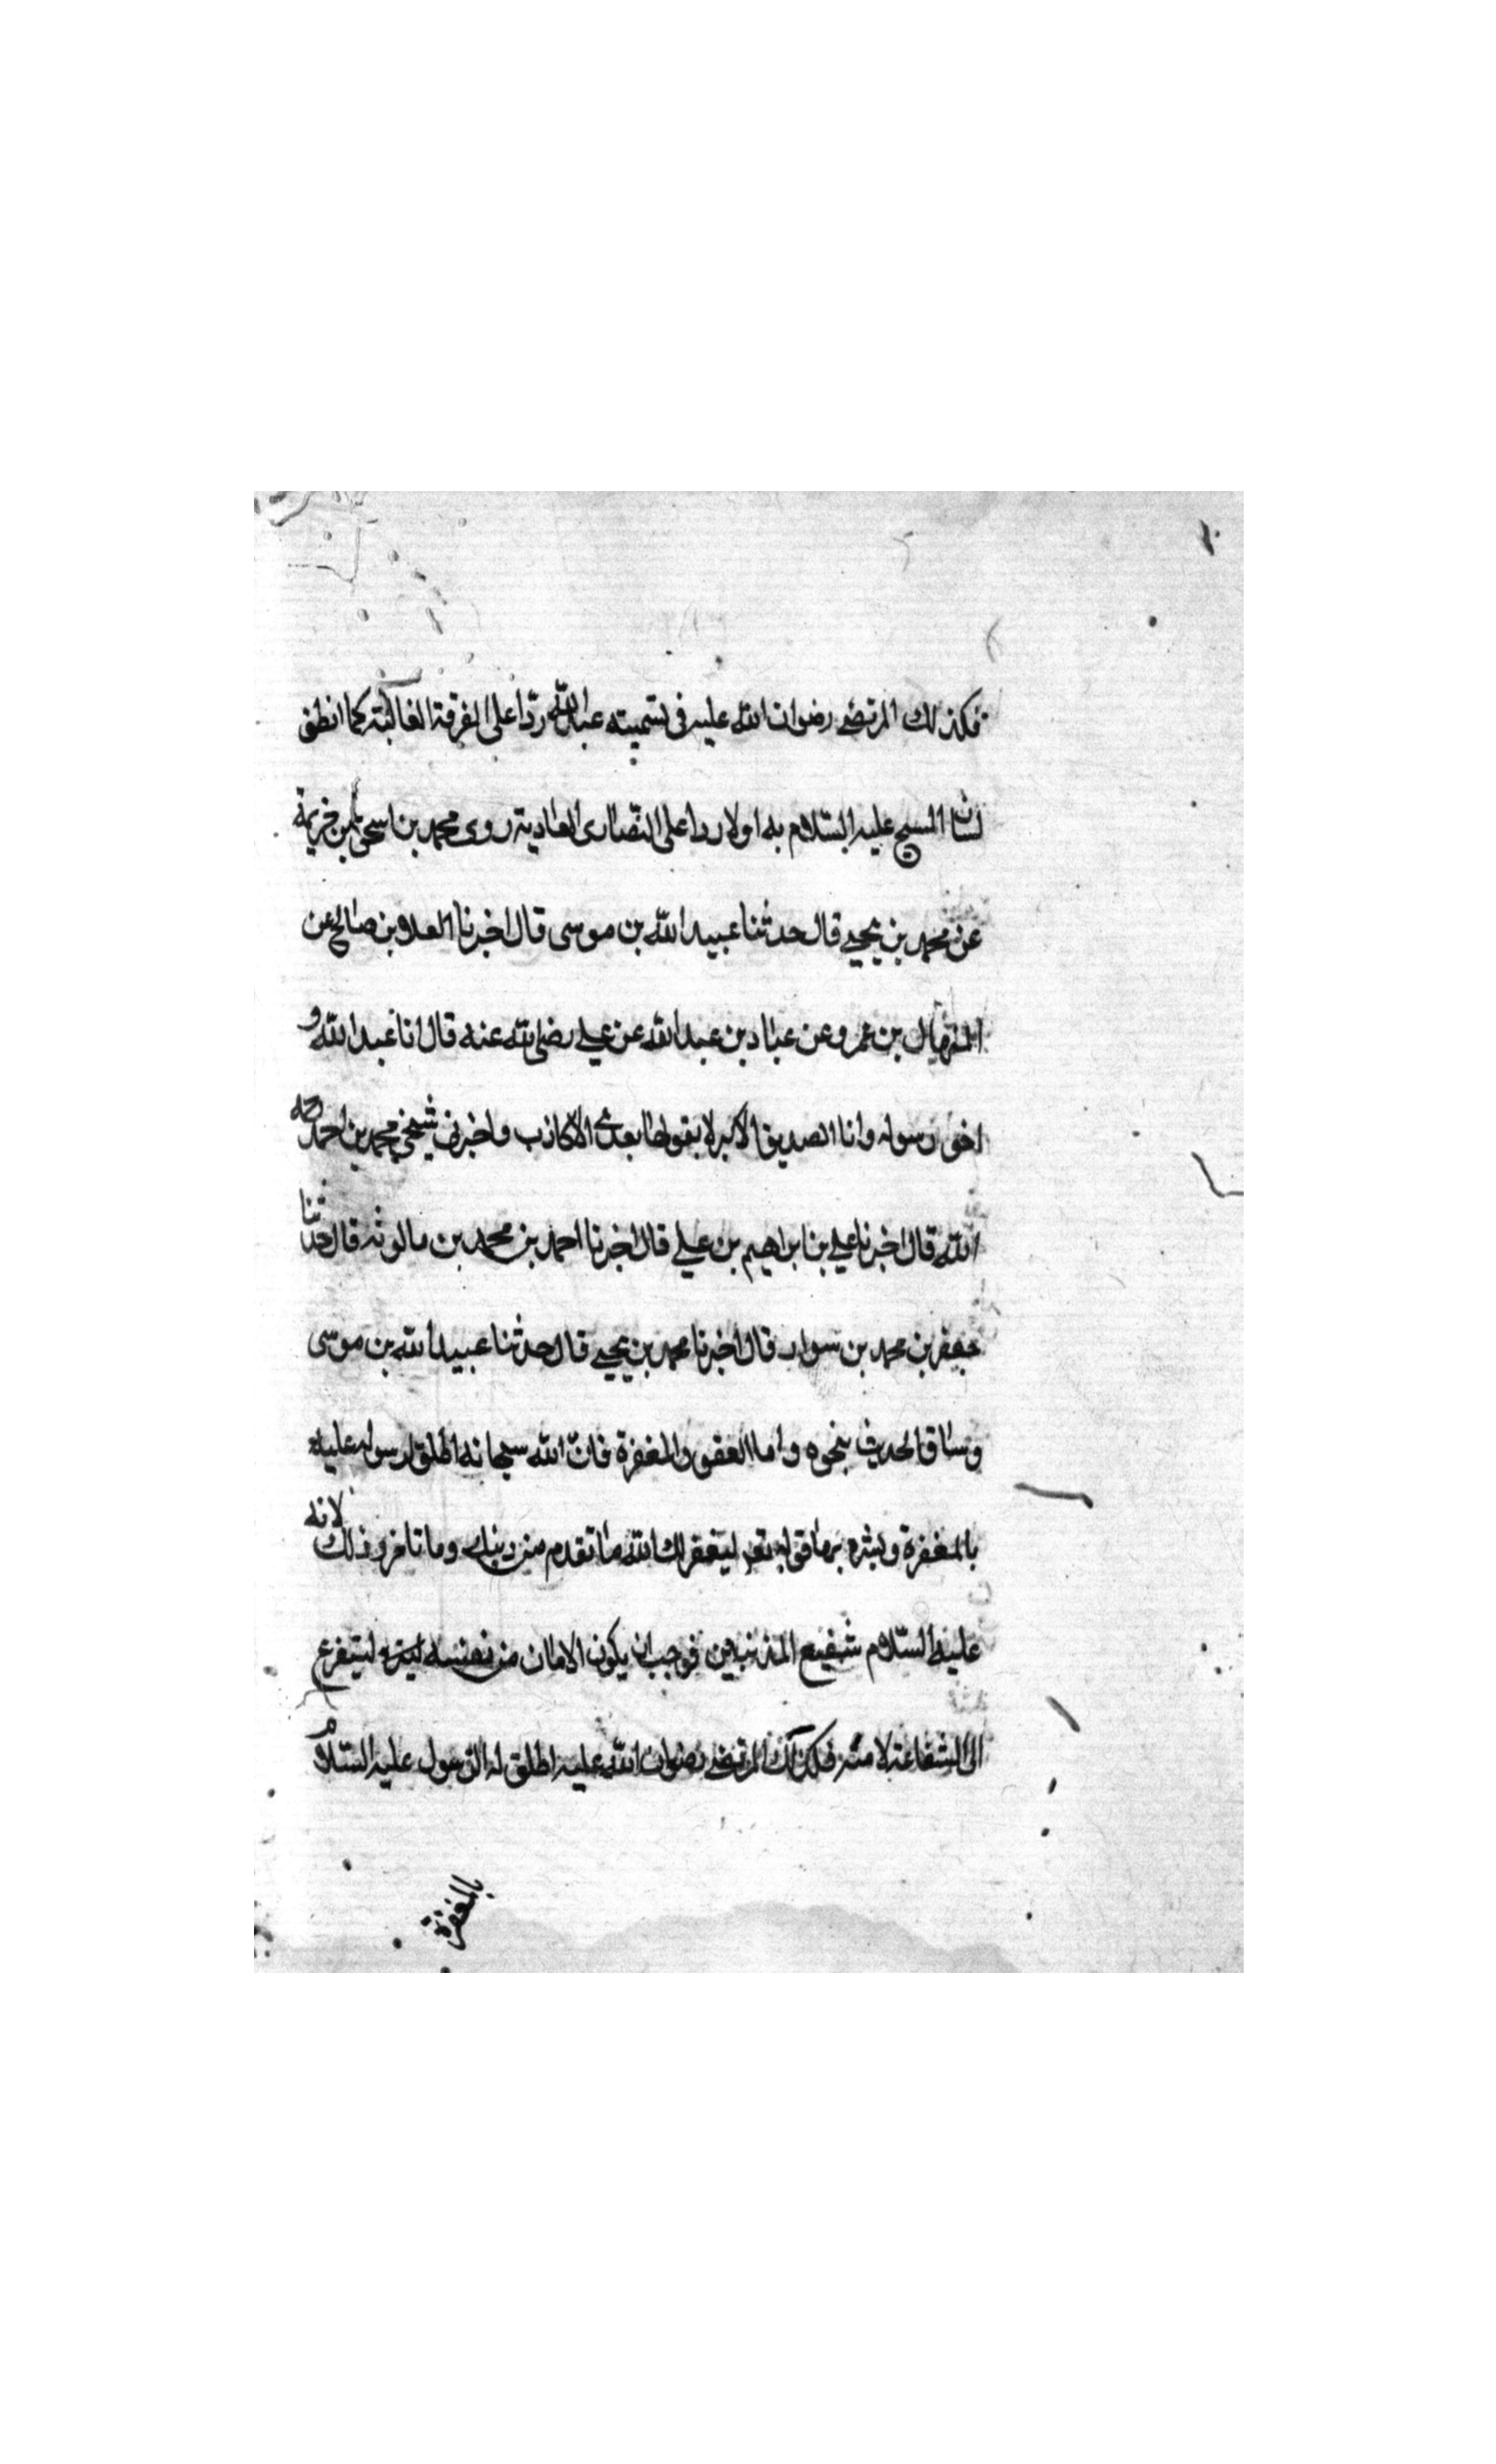 فكذلك المرتضى رضوان الله عليه فى تسميته عبدالله ردّا على الفرقة الغالية كما انطق
لسان المسيح عليه السّلام به اولا ردا على النّصارى العادية روى محمد بن اسحق بن خزيمة
عن محمد بن يحيى قال حدثنا عبيد الله بن موسى قال اخبرنا العلاء بن صالح عن
المنهال بن عمرو عن عباد بن عبد الله عن على رضى الله عنه قال انا عبد الله و
اخو رسوله وانا الصديق الاكبر لا يقولها بعدى الا كاذب واخبرنى شيخى محمد بن احمد رحمه
الله قال اخبرنا على بن ابراهيم بن على قال اخبرنا احمد بن محمد بن بالويه قال حدثنا
جعفر بن محمد بن سوار قال اخبرنا محمد بن يحيى قال حدثنا عبيد الله بن موسى
وساق الحديث بنحوه واما العفو والمغفرة فانّ الله سبحانه اطلق لرسوله عليه
بالمغفرة وبشره بها فى قوله تع ليغفر لك الله ما تقدم من ذنبك وما تاخر وذلك لانه
عليه السّلام شفيع المذنبين فوجب ان يكون الامان من نفسه ليتفرغ
الى الشفاعة لامته فكذلك المرتضى رضوان الله عليه اطلق له الرسول عليه السّلام
بالمغفرة